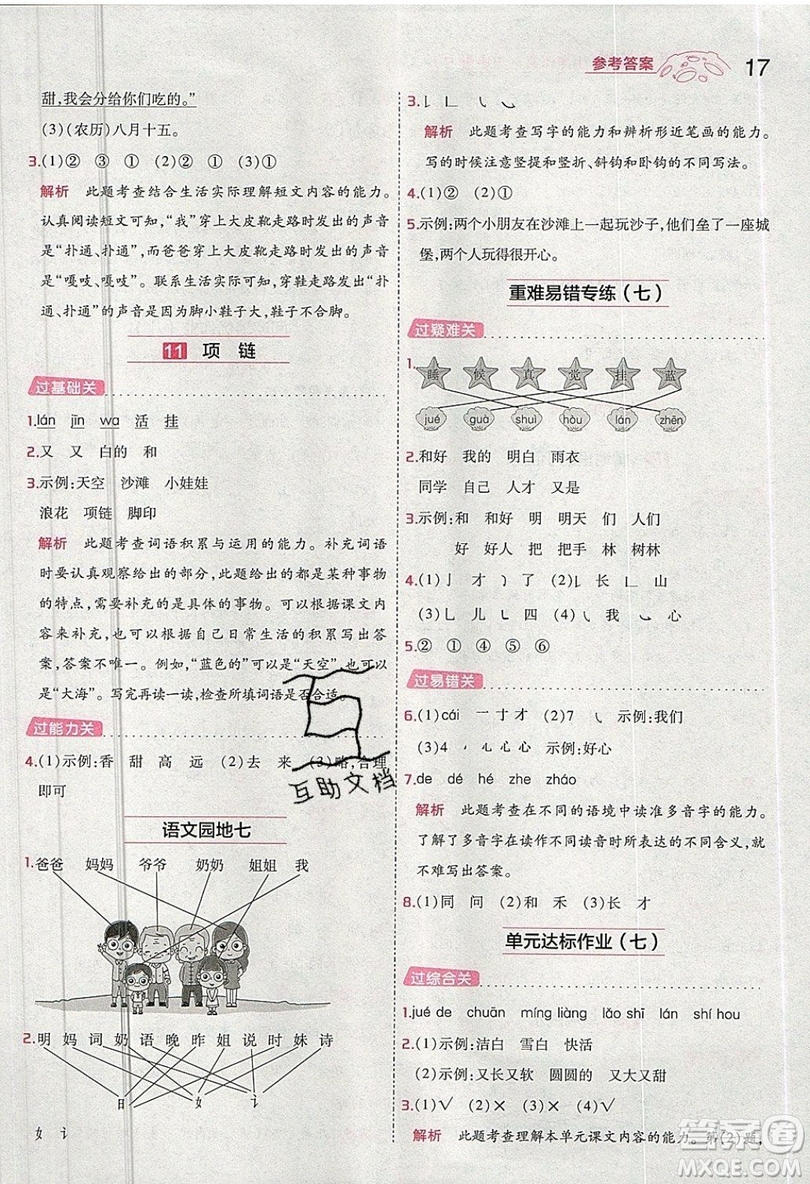 参考答案 17
甜,我会分给你们吃的。”
(3)(农历)八月十五。
3.(1)② (2)③ (3)①
解析 此题考查结合生活实际理解短文内容的能力。
认真阅读短文可知,“我”穿上大皮靴走路时发出的声
音是“扑通、扑通”,而爸爸穿上小鞋子走路时发出的声音
是“嘎吱、嘎吱”。联系生活实际可知,穿鞋走路时发出“扑
通、扑通”的声音是因为脚小鞋子大。
11 项 链
过基础关
1.lán jīn wa 活 挂
2.又 又 白的 和
3.示例:天空 沙滩 小娃娃
浪花 项链 脚印
解析 此题考查词语积累与运用的能力。补充词语
时要认真观察给出的部分,此题给出的都是某种事物
的特点,需要补充的是具体的事物。可以根据课文内
容来补充,也可以根据日常生活的积累写出答
案,答案不唯一。例如,“蓝色的”可以是“天空”,也可以
是“大海”。写完再读一读,检查所填词语是否合适。
过能力关
4.(1)示例:香 甜 高 远 (2)去 来 (3)略,合理
即可
语文园地七
1.爸爸 妈妈 爷爷 奶奶 姐姐 我
2.明 妈 词 奶 语 晚 昨 姐 说 时 妹 诗
日 女 讠
女 讠
3.㇙ ㇗ ㇂ ㇃
解析 此题考查写字的能力和辨析形近笔画的能力。
写的时候注意竖提和竖折、斜钩和卧钩的不同写法。
4.(1)② (2)①
5.示例:两个小朋友在沙滩上一起玩沙子,他们垒了一座城
堡,两个人玩得很开心。
重难易错专练(七)
过疑难关
1.
睡 候 真 觉 挂 蓝
jué guà shuì hòu lán zhēn
2.和好 我的 明白 雨衣
同学 自己 人才 又是
3.示例:和 和好 明 明天 们 人们
好 好人 把 把手 林 树林
4.(1)亅 才 ㇁ 了 (2)㇙ 长 ㇗ 山
(3)乚 儿 ㇄ 四 (4)㇂ 我 ㇃ 心
5.② ① ④
过易错关
6.(1)cái 一 十 才 (2)7 ㇂ 示例:我们
(3)4 ㇃ 心 心 示例:好心
7.de dé hé zhe zháo
解析 此题考查在不同的语境中读准多音字的能力。
了解了多音字在读作不同读音时所表达的意思,就
不难写出答案。
8.(1)同 问 (2)和 禾 (3)长 才
单元达标作业(七)
过综合关
1.jué de chuān míng liàng lǎo shī lán shí hou
2.(1)示例:洁白 雪白 快活
(2)示例:又长又软 圆圆的 又大又甜
3.(1)√ (2)× (3)× (4)√
解析 此题考查理解本单元课文内容的能力。第(2)题,
互助文档
答案圈
MXQE.COM